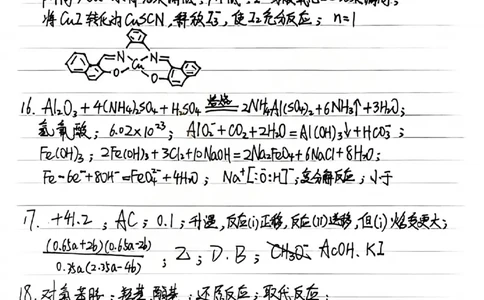 将CuI转化为CuSCN,释放I₃⁻,使I₂充分反应; n=1
N N
Cu
O O
16. Al₂O₃+4(NH₄)₂SO₄+H₂SO₄ 焙烧 2NH₄Al(SO₄)₂+6NH₃↑+3H₂O;
氢氧酸; 6.02×10²³; AlO₂⁻+CO₂+2H₂O=Al(OH)₃↓+HCO₃⁻;
Fe(OH)₃; 2Fe(OH)₃+3Cl₂+10NaOH=2Na₂FeO₄+6NaCl+8H₂O;
Fe-6e⁻+8OH⁻=FeO₄²⁻+4H₂O; Na⁺[:Ö:H]⁻; 复分解反应; 小于
17. +41.2; AC; 0.1; 升温,反应(i)正移,反应(ii)逆移,但(i)焓变更大;
(0.65a+2b)(0.65a-2b)
0.35a(2.35a-4b) ; Z; D.B; CH₃O⁻ AcOH.KI
18. 对氨基酚; 羟基 ; 还原反应; 取代反应;